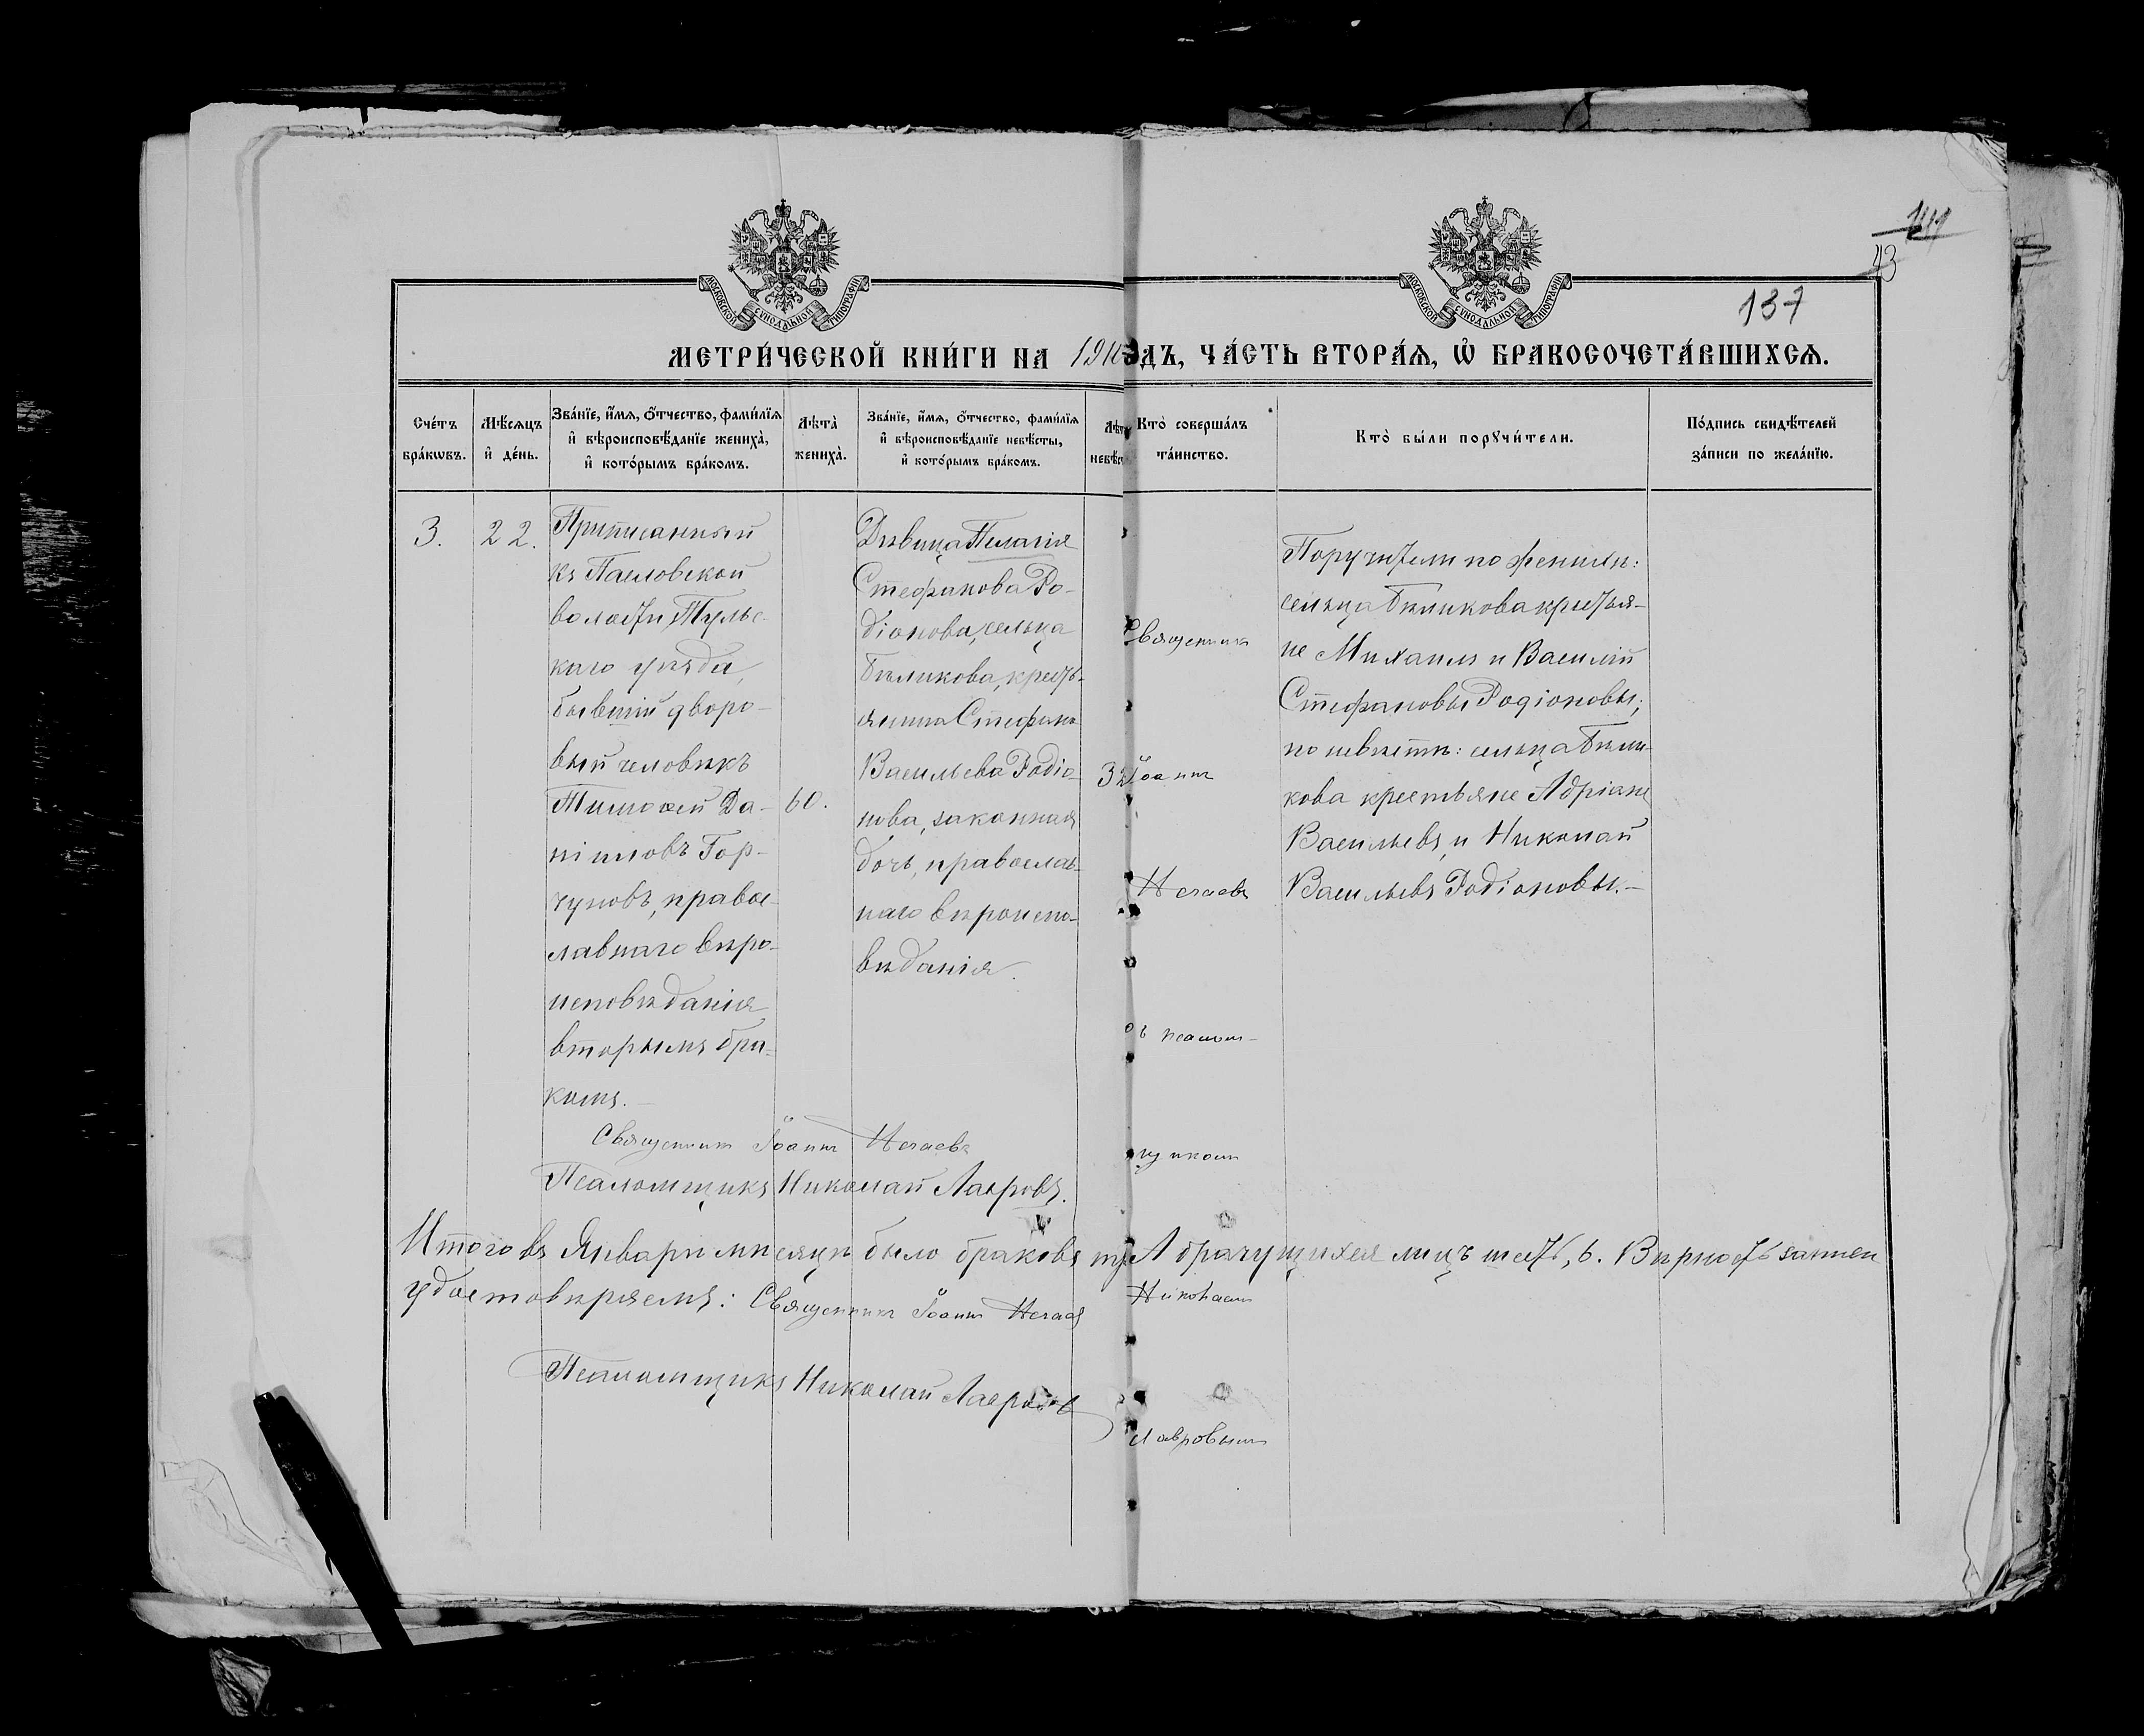 МОСКОВСКОЙ СѴНОДАЛЬНОЙ ТИПОГРАФІИ
МОСКОВСКОЙ СѴНОДАЛЬНОЙ ТИПОГРАФІИ
43
137
МЕТРИ́ЧЕСКОЙ КНИ́ГИ НА 191 ДЪ, ЧА́СТЬ ВТОРА́Ѧ, Ѡ҆ БРАКОСОЧЕТА́ВШИХСѦ.
Сче́тъ бра́кѡвъ.
Мѣ́сѧцъ и҆ де́нь.
Зва́нїе, и҆́мѧ, ѻ҆́тчество, фами́лїѧ и҆ вѣроисповѣ́данїе жениха̀, и҆ кото́рымъ бра́комъ.
Лѣта̀ жениха̀.
Зва́нїе, и҆́мѧ, ѻ҆́тчество, фами́лїѧ и҆ вѣроисповѣ́данїе невѣ́сты, и҆ кото́рымъ бра́комъ.
Лѣт
невѣс
Кто̀ соверша́лъ та́инство.
Кто̀ бы́ли порꙋчи́тели.
По́дпись свидѣ́телей за́писи по жела́нїю.
3.
22.
Приписанный
къ Павловской
волости, Тульс-
каго уѣзда,
бывшій дворо-
вый человѣкъ
Тимофей Да-
ніиловъ Гор-
чуновъ, правос-
лавнаго вѣро-
исповѣданія
вторымъ бра-
комъ.—
60.
Дѣвица Пелагія
Стефанова Ро-
діонова, сельца
Бѣликова, кресть-
янина Стефана
Васильева Родіо-
нова, законная
дочь, православ-
наго вѣроиспо-
вѣданія.
32
Священник
Іоанн
Нечаевъ
съ псалом-
щиком
Николаем
Лавровым
Поручители по женихѣ:
сельца Бѣликова крестья-
не Михаилъ и Василій
Стефановы Родіоновы;
по невѣстѣ: сельца Бѣли-
кова крестьяне Адріанъ
Васильевъ, и Николай
Васильевъ Родіоновы.—
Священник Іоанн Нечаевъ
Псаломщикъ Николай Лавровъ.
Итого въ Январѣ мѣсяцѣ было браковъ А брачущихся лицъ шесть, 6. Вѣрность записи
удостовѣряемъ: Священник Іоанн Нечаевъ
Псаломщикъ Николай Лавровъ